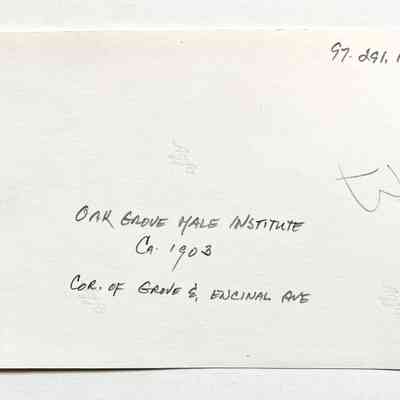 97.291.1
OAK GROVE MALE INSTITUTE
CA. 1903
COR. OF GROVE & ENCINAL AVE